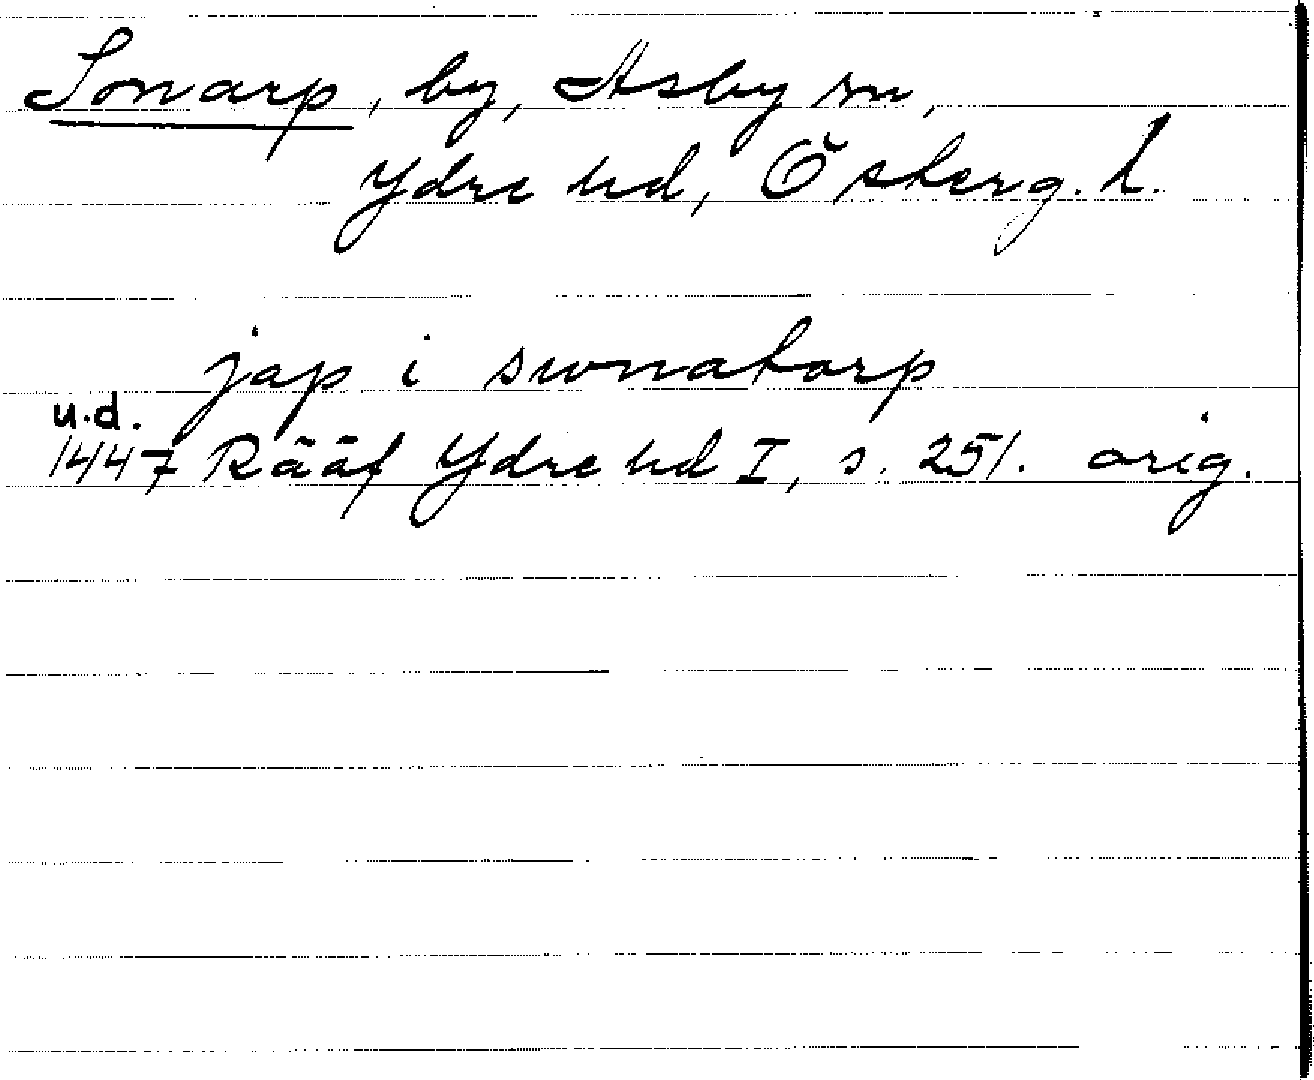 Sonarp, by, Asby sn,
Ydre hd, Österg. l.
jap i swnatorp
u.d.
1447 Rääf Ydre hd I, s. 251. orig.